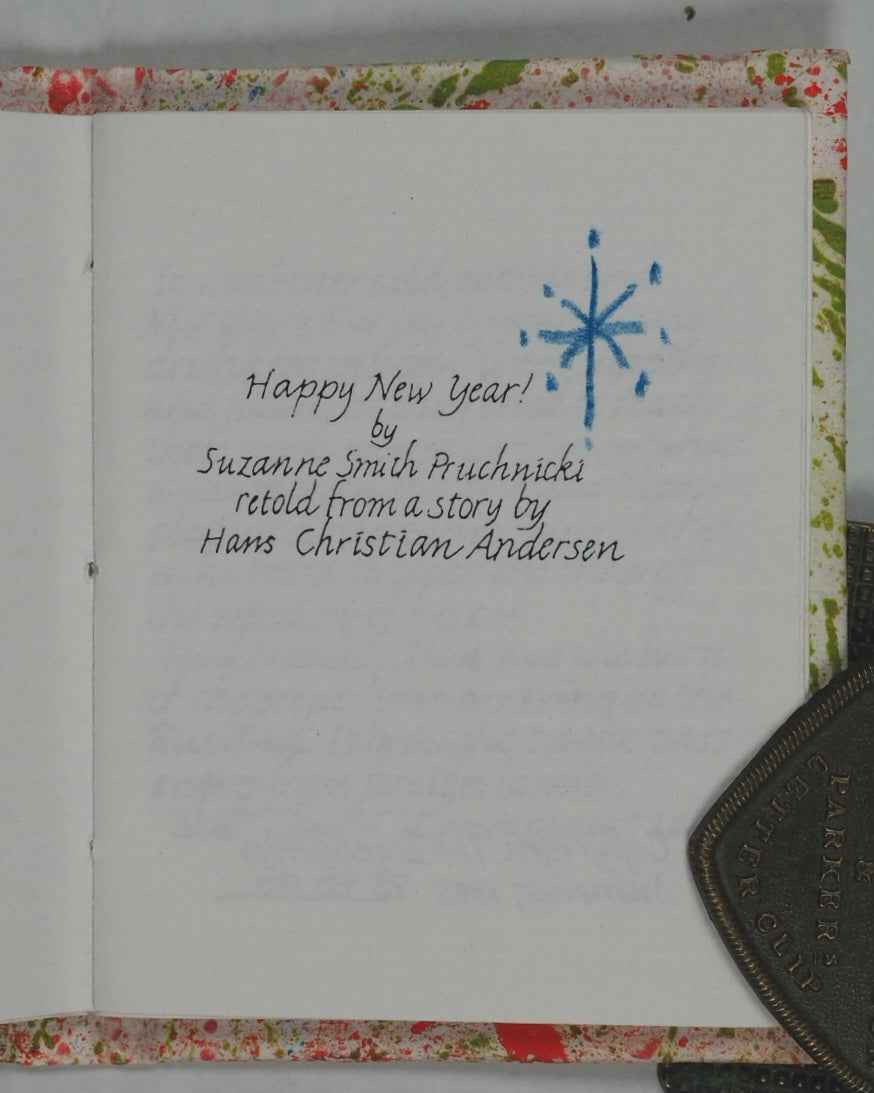 Happy New Year!
by
Suzanne Smith Pruchnicki
retold from a story by
Hans Christian Andersen
PARKER'S
LETTER CLIP